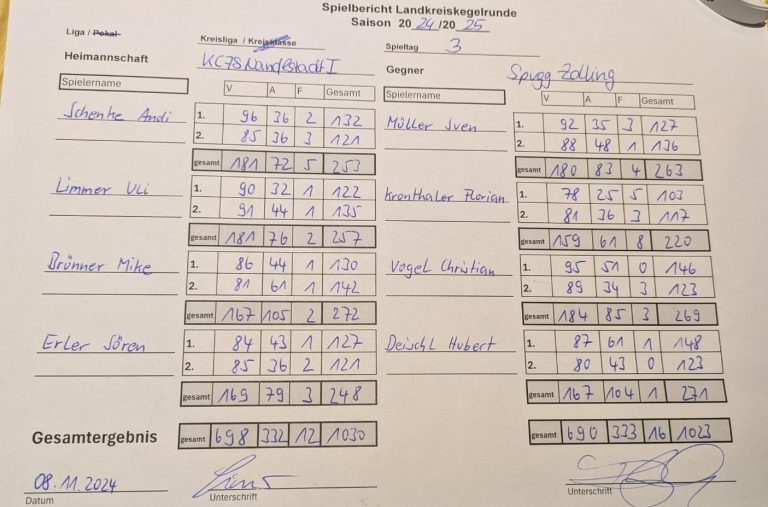 Spielbericht Landkreiskegelrunde
Saison 20 24 /20 25
Liga / Pokal Kreisliga / Kreisklasse Spieltag 3
Heimmannschaft KC78 Nandlstadt I Gegner Spvgg Zolling
Spielername V A F Gesamt Spielername V A F Gesamt
Schenke Andi 1. 96 36 2 132 Müller Sven 1. 92 35 3 127
2. 85 36 3 121 2. 88 48 1 136
gesamt 181 72 5 253 gesamt 180 83 4 263
Limmer Uli 1. 90 32 1 122 Kronthaler Florian 1. 78 25 5 103
2. 91 44 1 135 2. 81 36 3 117
gesamt 181 76 2 257 gesamt 159 61 8 220
Brünner Mike 1. 86 44 1 130 Vogel Christian 1. 95 51 0 146
2. 81 61 1 142 2. 89 34 3 123
gesamt 167 105 2 272 gesamt 184 85 3 269
Erler Sören 1. 84 43 1 127 Deischl Hubert 1. 87 61 1 148
2. 85 36 2 121 2. 80 43 0 123
gesamt 169 79 3 248 gesamt 167 104 1 271
Gesamtergebnis gesamt 698 332 12 1030 gesamt 690 333 16 1023
08.11.2024
Datum Unterschrift Unterschrift